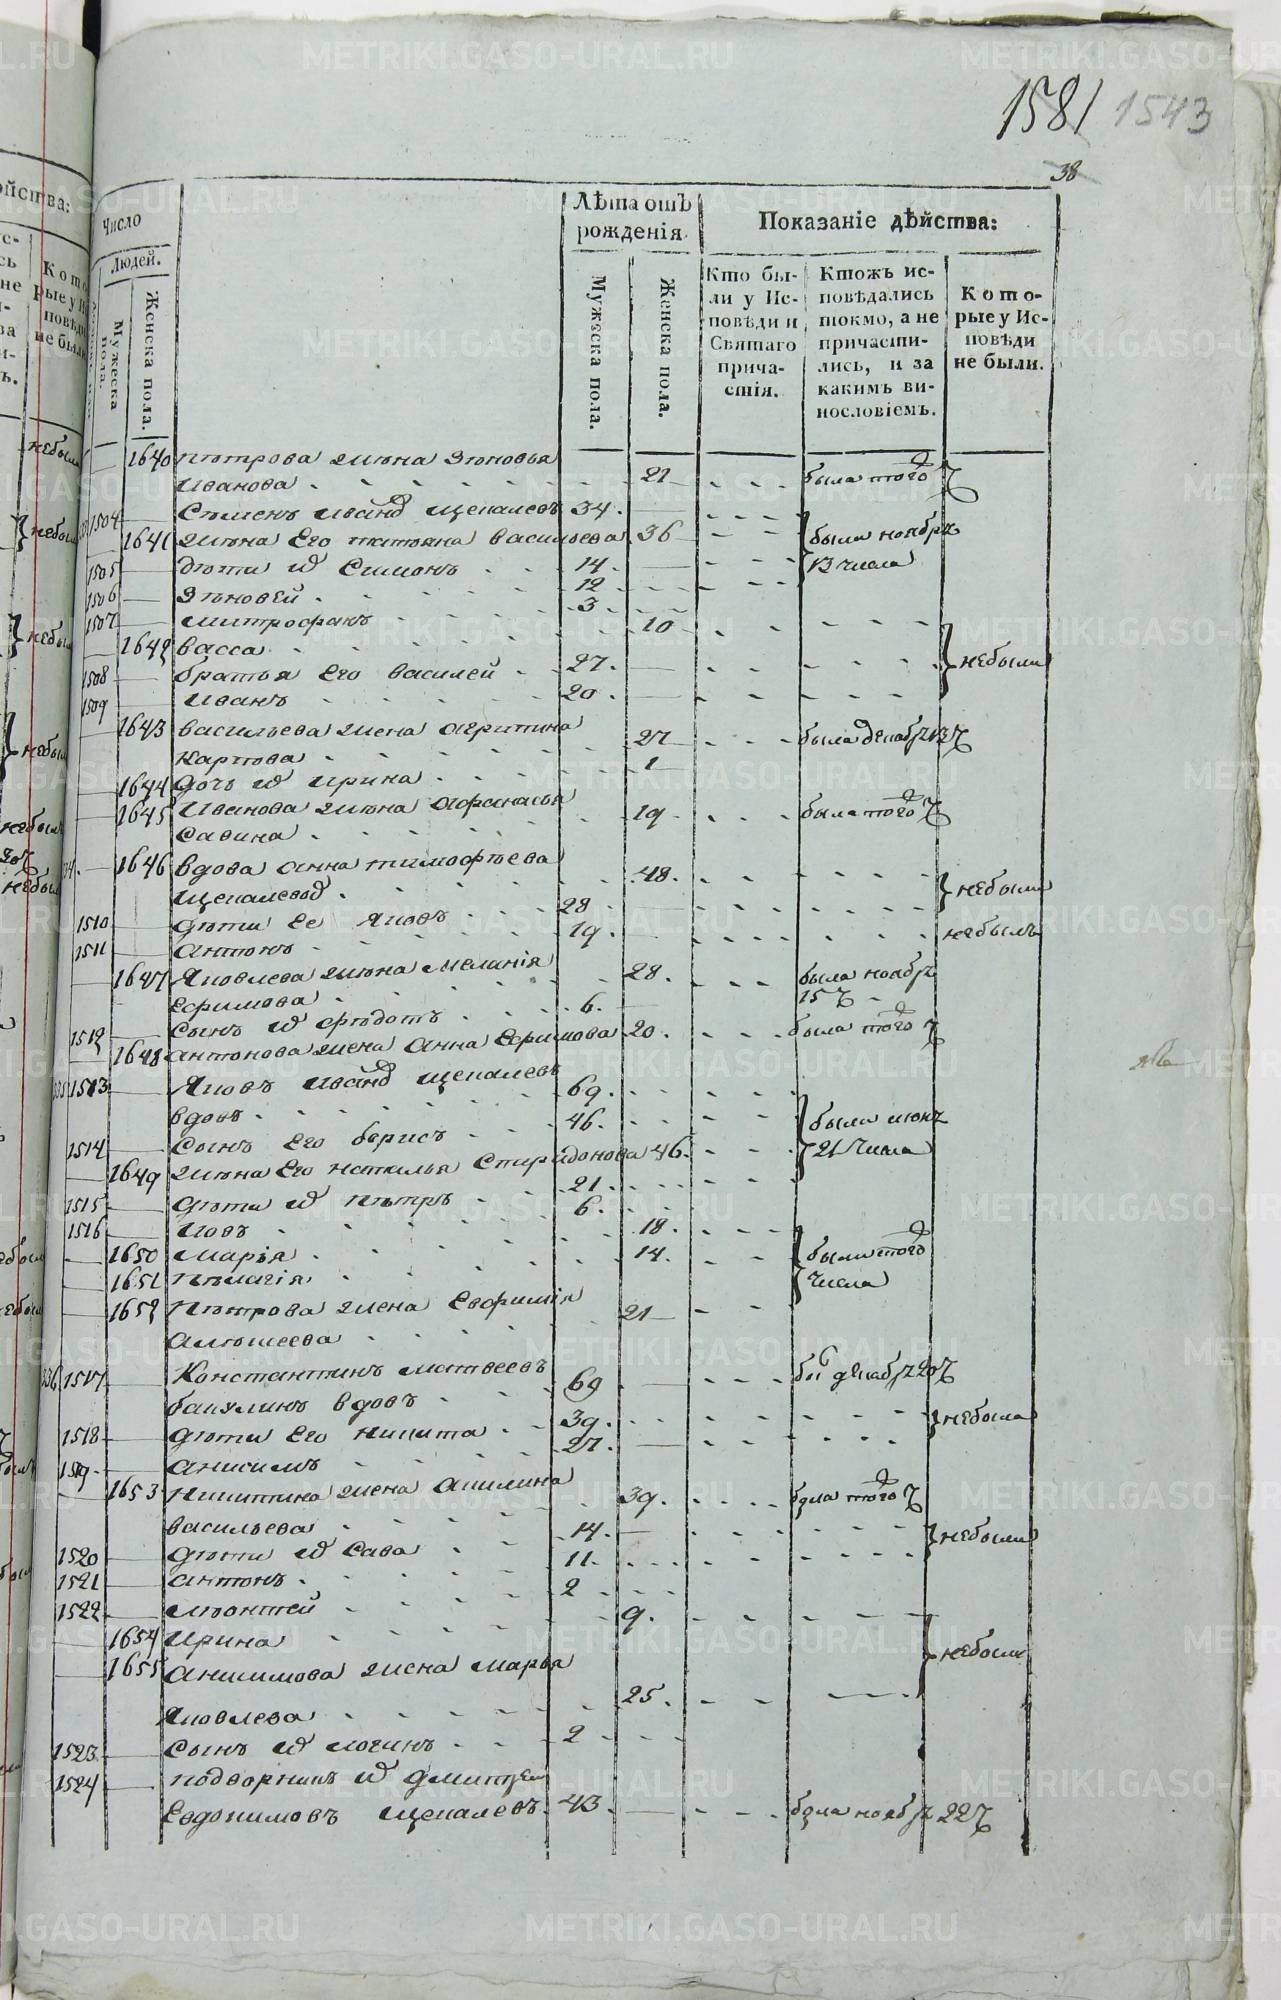 1581 1543
38
Число
Людей.
Мужеска пола.
Женска пола.
Лѣта отъ рожденія
Мужеска пола.
Женска пола.
Показаніе дѣйства:
Кто бы-
ли у Ис-
повѣди и
Святаго
прича-
стія.
Ктожъ ис-
повѣдались
токмо, а не
причасти-
лись, и за
какимъ ви-
нословіемъ.
Кото-
рые у Ис-
повѣди
не были.
1640 петрова жена Зѣновья
Иванова 21 была того ч
1504 Семенъ Иванов Щепалевъ 34
1641 жена Его татьяна васильева 36 были ноябръ
13 числа
1505 дѣти их Симонъ 14
1506 Зѣновей 12
1507 митрофанъ 3
1642 васса 10
1508 братья Его василей 27 небыли
1509 Иванъ 20
1643 васильева жена агрипина
Карпова 27 была декабр 13 ч
1644 дочь их ирина 1
1645 Иванова жена афанасья
Савина 19 была того ч
1646 вдова анна тимофѣева
Щепалевых 48 небыли
1510 дѣти Ее Яковъ 28
1511 антонъ 19 небылъ
1647 Яковлева жена меланія
Ефимова 28 была ноябр
15 ч
1512 сынъ их фѣдотъ 6
1648 антонова жена анна Ефимова 20 была того ч
1513 Яковъ Иванов Щепалевъ
вдовъ 69
1514 сынъ Его борисъ 46 были июнъ
21 числа
1649 жена Его наталья Спиридонова 46
1515 дѣти их петръ 21
1516 Иовъ 6
1650 марья 18 были того
1651 пелагія 14 числа
1652 петрова жена Евфимія
алексеева 21
1517 Константинъ матвеевъ
бакулинъ вдовъ 69 декабр 20 ч
1518 дѣти Его никита 39 небыли
1519 анисимъ 27
1653 никитина жена акилина
васильева 39 была того ч
1520 дѣти их Сава 14 небыли
1521 антонъ 11
1522 леонтей 2
1654 Ирина 9
1655 анисимова жена марья небыли
Яковлева 25
1523 сынъ их логинъ 2
1524 подворникъ их дмитрей
Евдокимовъ Щепалевъ 43 была ноябръ 22 ч
METRIKI.GASO-URAL.RU